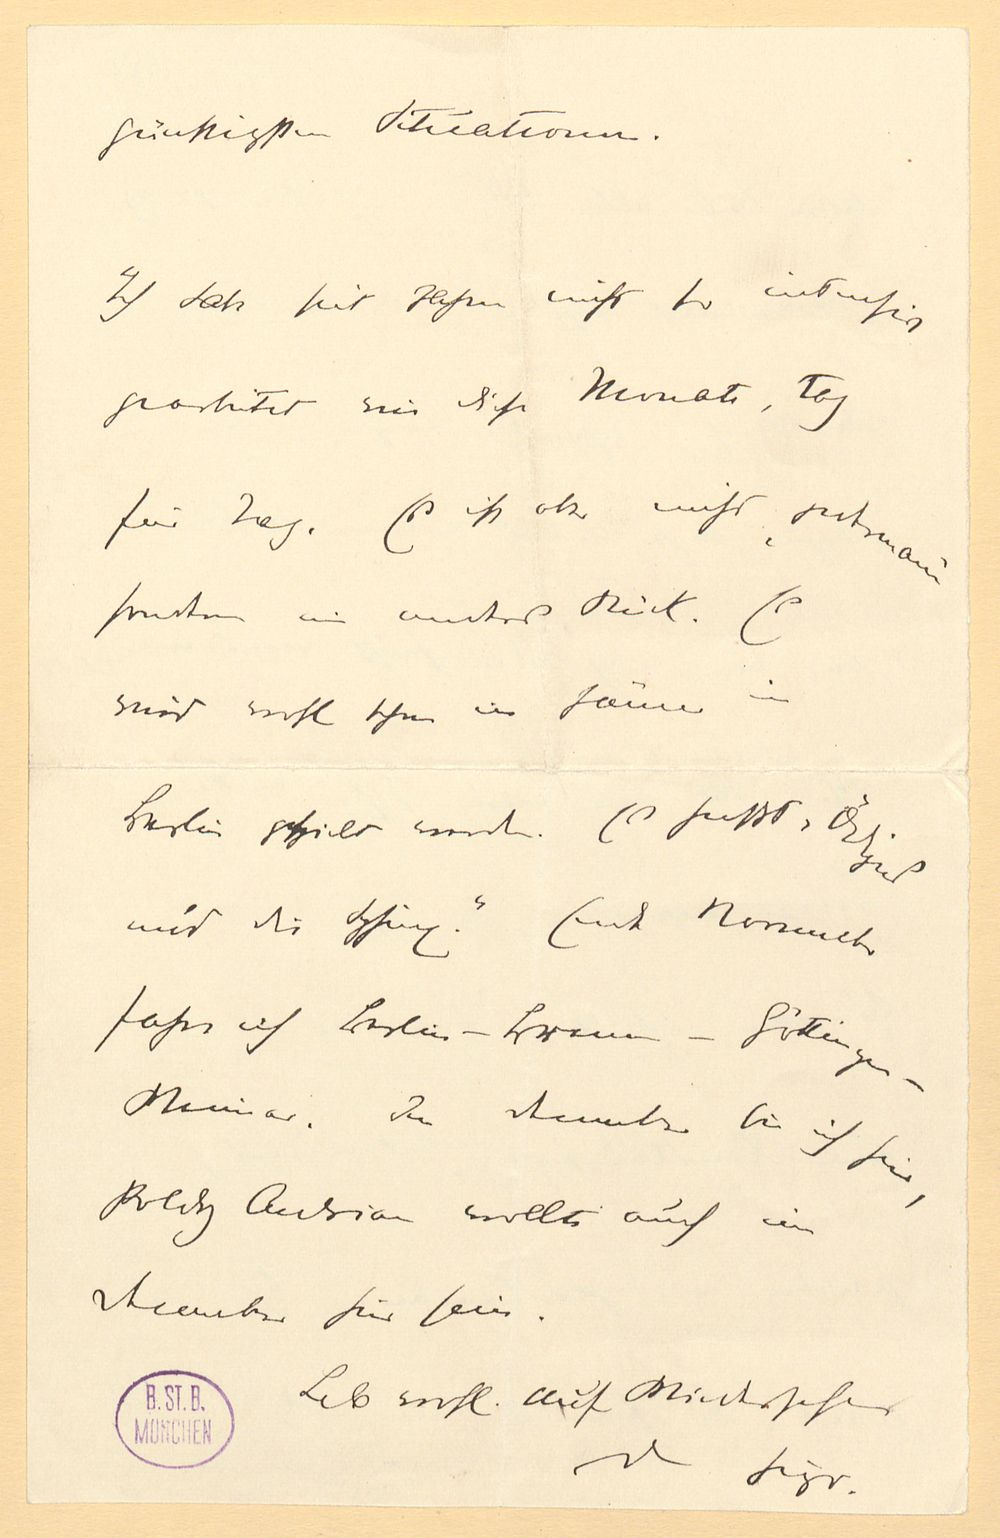 günstigsten Situationen.
Ich habe seit Jahren nicht so intensiv
gearbeitet wie diese Monate, Tag
für Tag. Es ist aber nicht „Jedermann"
sondern ein anderes Stück. Es
wird wohl schon im Jänner in
Berlin gespielt werden. Es heißt „Ödipus
und die Sphinx." Ende November
fahre ich Berlin – Bremen – Göttingen –
Weimar. Im December bin ich hier,
Poldy Andrian wollte auch im
December hier sein.
Leb wohl. Auf Wiedersehen
Hugo.
B. ST. B.
MÜNCHEN